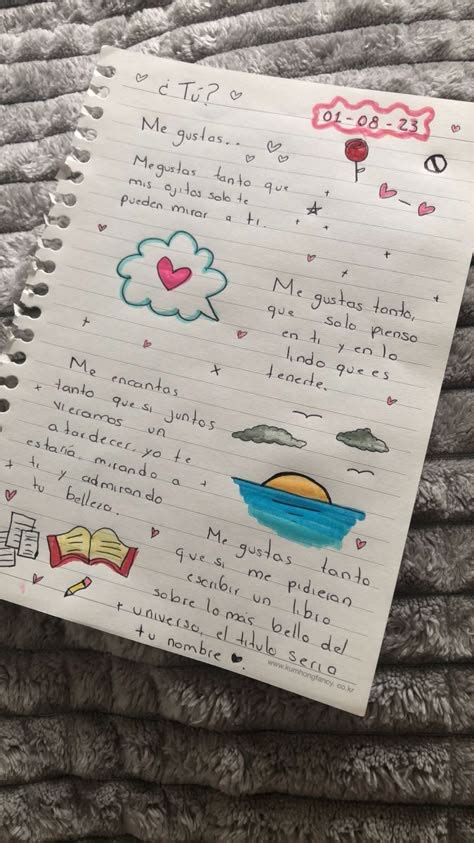 ¿Tú?
01-08-23
Me gustas..
Me gustas tanto que
mis ojitos solo te
pueden mirar a ti.
Me gustas tanto,
que solo pienso
en ti y en lo
lindo que es
tenerte.
Me encantas
tanto que si juntos
vieramos un
atardecer, yo te
estaría mirando a
ti y admirando
tu belleza.
Me gustas tanto
que si me pidieran
escribir un libro
sobre lo más bello del
universo, el titulo seria
tu nombre
www.kumhongfancy.co.kr